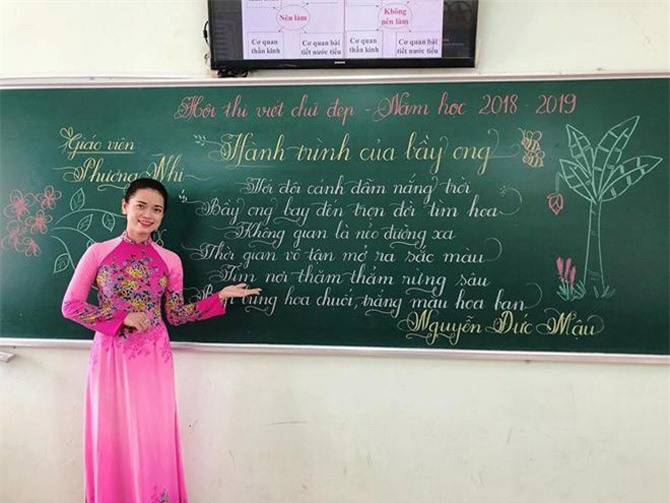 Nên làm
Không nên làm
Cơ quan thần kinh
Cơ quan bài tiết nước tiểu
Cơ quan thần kinh
Cơ quan bài tiết nước tiểu
Hội thi viết chữ đẹp - Năm học 2018 - 2019
Giáo viên
Phương Nhi
Hành trình của bầy ong
Với đôi cánh đẫm nắng trời
Bầy ong bay đến trọn đời tìm hoa
Không gian là nẻo đường xa
Thời gian vô tận mở ra sắc màu
Tìm nơi thăm thẳm rừng sâu
bùng hoa chuối, trắng màu hoa ban
Nguyễn Đức Mậu